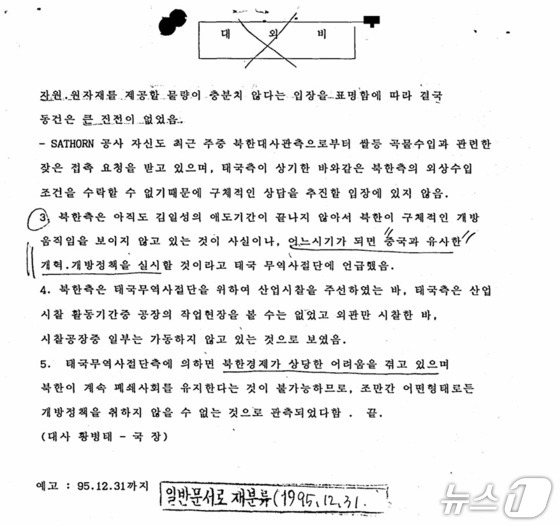 대 외 비
자원.원자재를 제공할 물량이 충분치 않다는 입장을 표명함에 따라 결국
동건은 큰 진전이 없었음.
- SATHORN 공사 자신도 최근 주중 북한대사관측으로부터 쌀등 곡물수입과 관련한
잦은 접촉 요청을 받고 있으며, 태국측이 상기한 바와같은 북한측의 외상수입
조건을 수락할 수 없기때문에 구체적인 상담을 추진할 입장에 있지 않음.
3. 북한측은 아직도 김일성의 애도기간이 끝나지 않아서 북한이 구체적인 개방
움직임을 보이지 않고 있는 것이 사실이나, 어느시기가 되면 "중국과 유사한"
개혁.개방정책을 실시할 것이라고 태국 무역사절단에 언급했음.
4. 북한측은 태국무역사절단을 위하여 산업시찰을 주선하였는 바, 태국측은 산업
시찰 활동기간중 공장의 작업현장을 볼 수는 없었고 외관만 시찰한 바,
시찰공장중 일부는 가동하지 않고 있는 것으로 보였음.
5. 태국무역사절단측에 의하면 북한경제가 상당한 어려움을 겪고 있으며
북한이 계속 폐쇄사회를 유지한다는 것이 불가능하므로, 조만간 어떤형태로든
개방정책을 취하지 않을 수 없는 것으로 관측되었다함 . 끝.
(대사 황병태 - 국 장)
예고 : 95.12.31까지
일반문서로 재분류(1995.12.31.
뉴스1